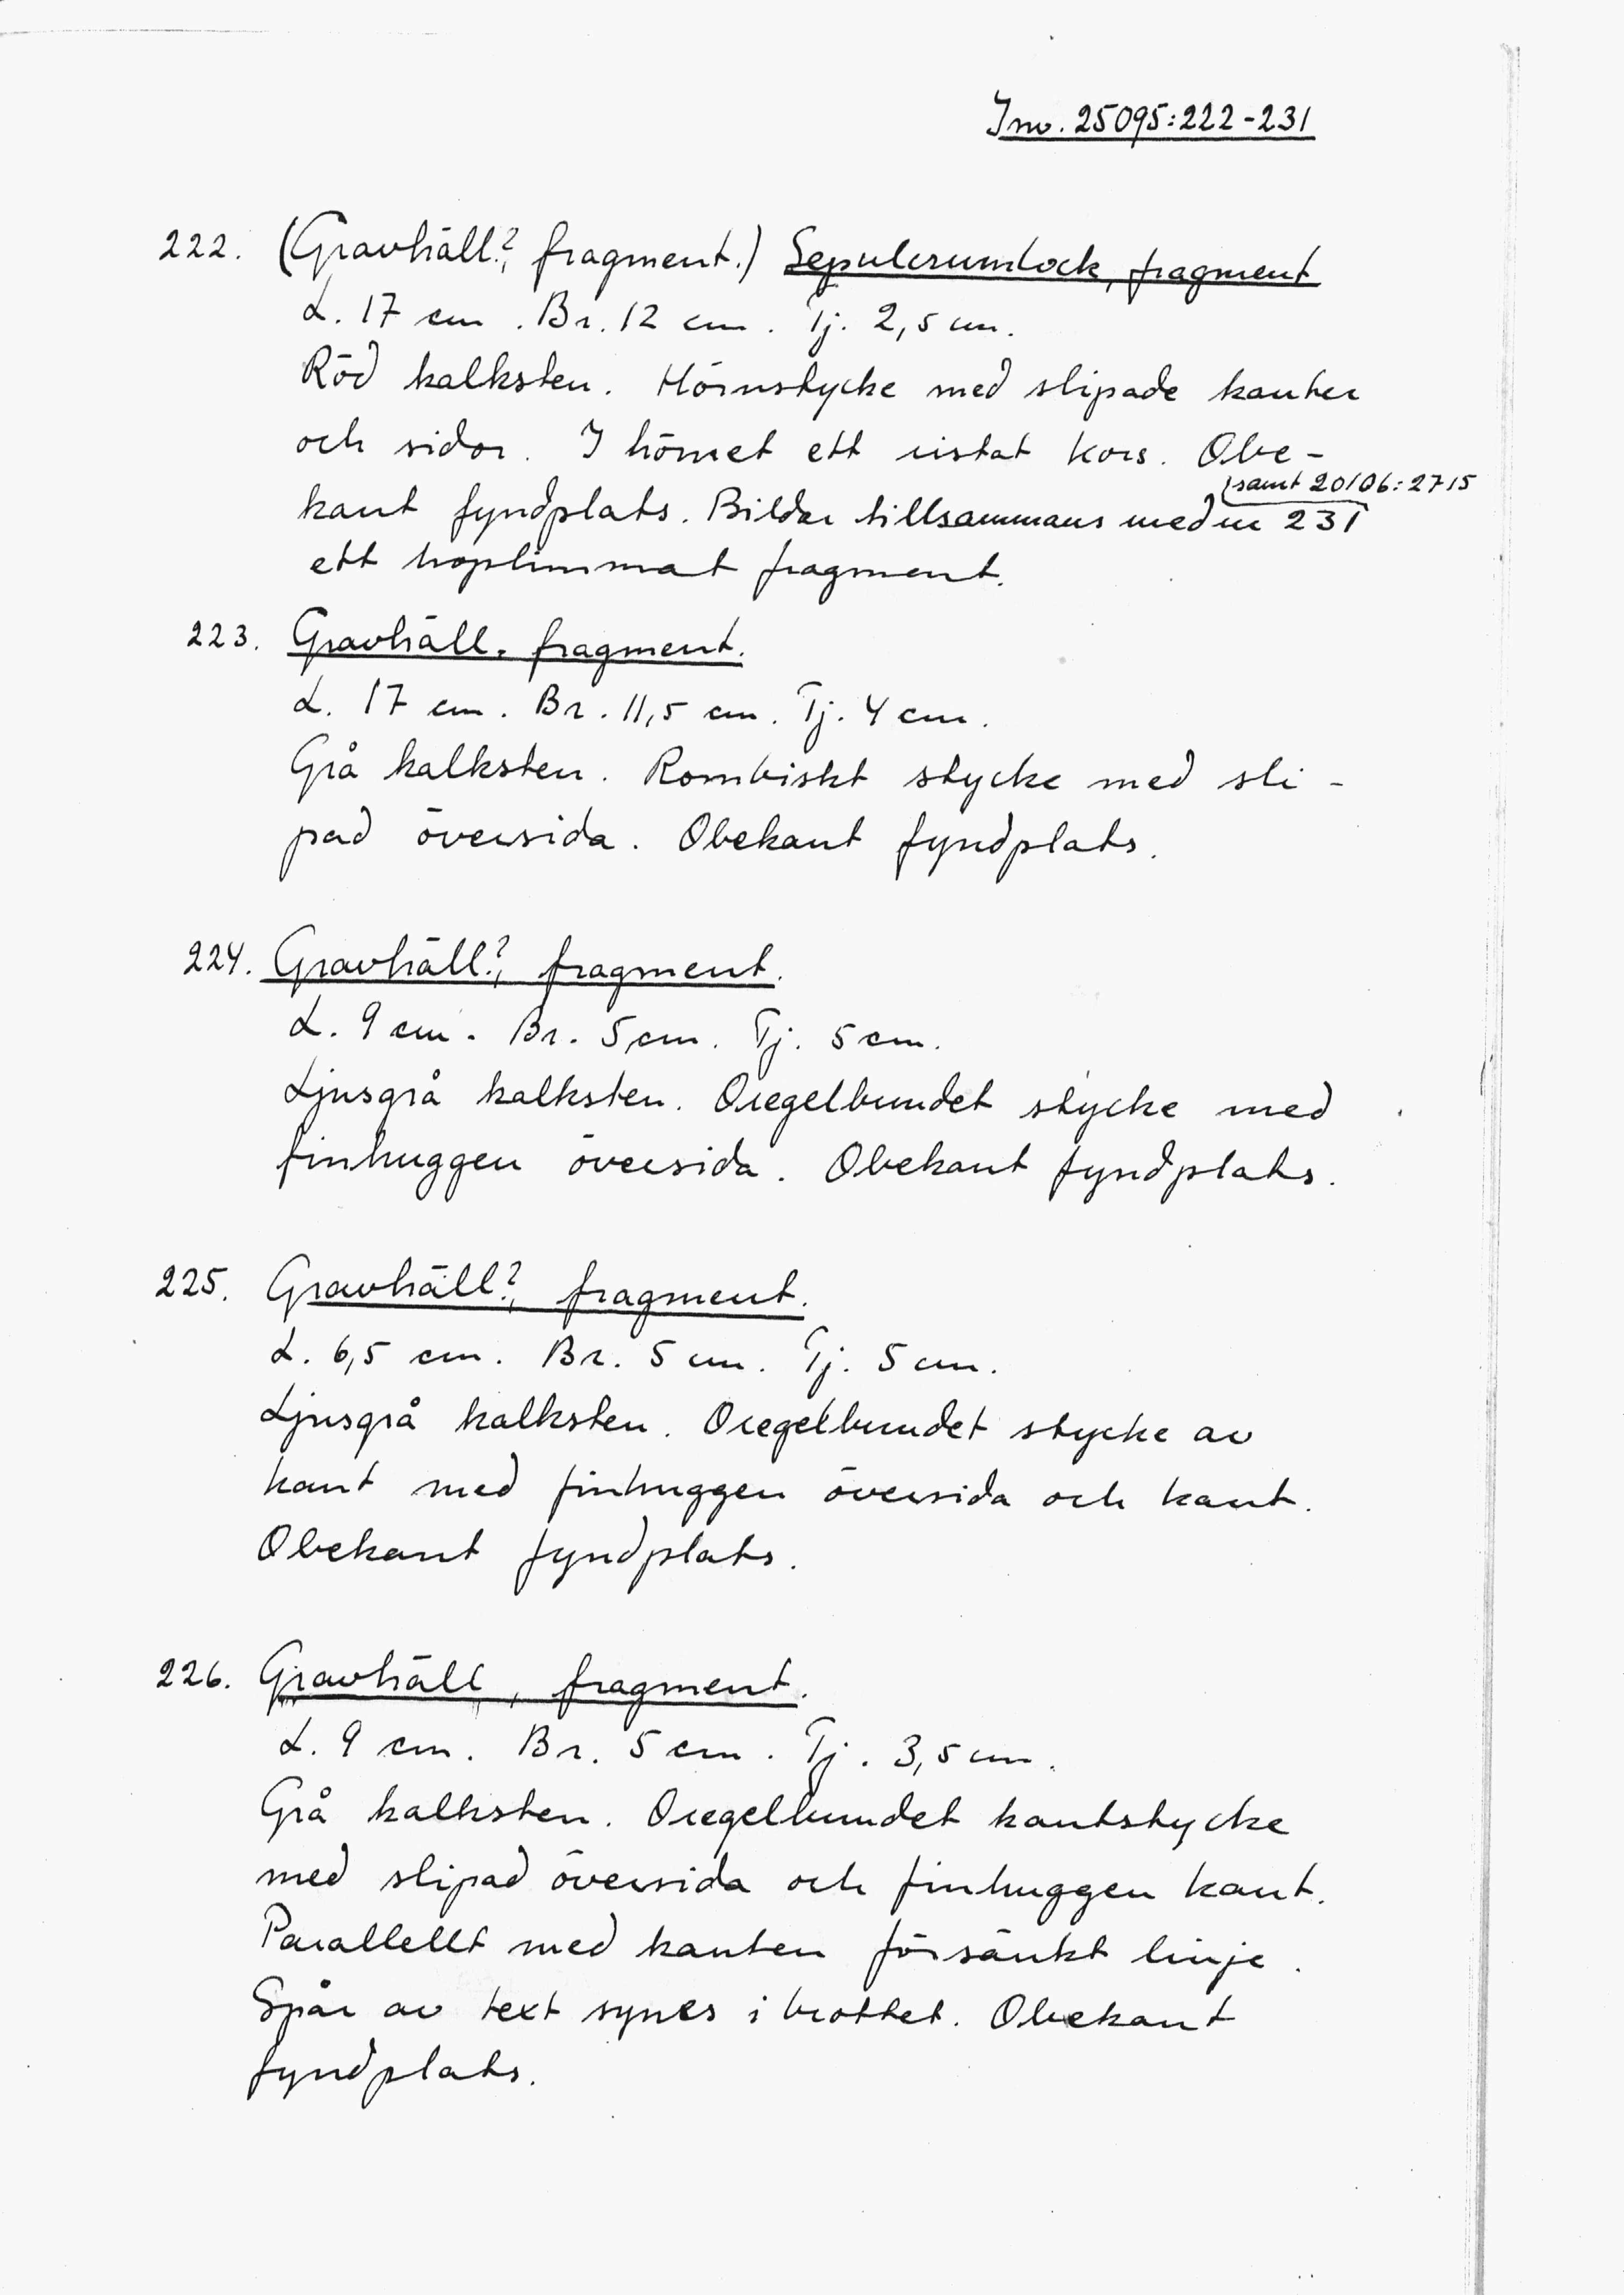 Inv. 25095:222-231
222. (Gravhäll?, fragment.) Sepulcrumlock, fragment
L. 17 cm. Br. 12 cm. Tj. 2,5 cm.
Röd kalksten. Hörnstycke med slipade kanter
och sidor. I hörnet ett ristat kors. Obe-
samt 20106:2715
kant fyndplats. Bildar tillsammans med nr 231
ett hoplimmat fragment.
223. Gravhäll, fragment.
L. 17 cm. Br. 11,5 cm. Tj. 4 cm.
Grå kalksten. Rombiskt stycke med sli-
pad översida. Obekant fyndplats.
224. Gravhäll?, fragment.
L. 9 cm. Br. 5 cm. Tj. 5 cm.
Ljusgrå kalksten. Oregelbundet stycke med
finhuggen översida. Obekant fyndplats.
225. Gravhäll?, fragment.
L. 6,5 cm. Br. 5 cm. Tj. 5 cm.
Ljusgrå kalksten. Oregelbundet stycke av
kant med finhuggen översida och kant.
Obekant fyndplats.
226. Gravhäll, fragment.
L. 9 cm. Br. 5 cm. Tj. 3,5 cm.
Grå kalksten. Oregelbundet kantstycke
med slipad översida och finhuggen kant.
Parallellt med kanten försänkt linje.
Spår av text synes i brottet. Obekant
fyndplats.